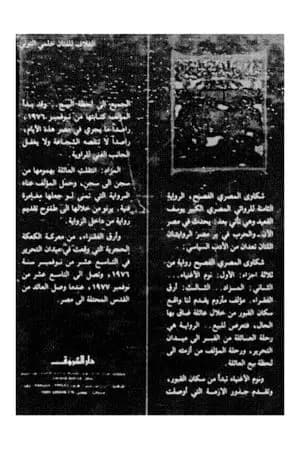 الغلاف للفنان حلمي التوني
شكاوى المصري الفصيح، الرواية
الثامنة للروائي المصري الكبير يوسف
القعيد وهي تأتي بعد: يحدث في مصر
الآن.. والحرب في بر مصر الروايتان
اللتان تعدان من الأدب السياسي..
شكاوى المصري الفصيح رواية من
ثلاثة أجزاء: الأول: نوم الأغنياء...
الثاني: المزاد... الثالث: أرق
الفقراء. مؤلف مأزوم يقدم لنا واقع
سكان القبور من خلال عائلة ضاق بها
الحال، فتعرض للبيع.. الرواية هي
رحلة العائلة من القبر إلى ميدان
التحرير، ورحلة المؤلف من أزمته إلى
لحظة بيع العائلة.
ونوم الأغنياء تبدأ من سكان القبور،
وتقدم جذور الأزمة التي أوصلت
الجميع إلى لحظة البيع.. وقد بدأ
المؤلف كتابتها من نوفمبر ١٩٧٦،
راصداً ما يجري في مصر هذه الأيام،
رصداً لا تنقصه الشجاعة ولا يغفل
الجانب الفني للرواية.
المزاد: انتقلت العائلة بهمومها من
سجن إلى سجن، وحمل المؤلف عناء
الرواية التي تمنى لو جعلها مغامرة
فنية، يرنو من خلالها إلى طموح تقديم
رواية من داخل الرواية.
وأرق الفقراء، من معركة الكعكة
الحجرية التي وقعت في ميدان التحرير
في التاسع عشر من نوفمبر سنة
١٩٧٦، وتصل إلى التاسع عشر من
نوفمبر ١٩٧٧، عندما وصل العائد من
القدس المحتلة إلى مصر.
دار الشروق